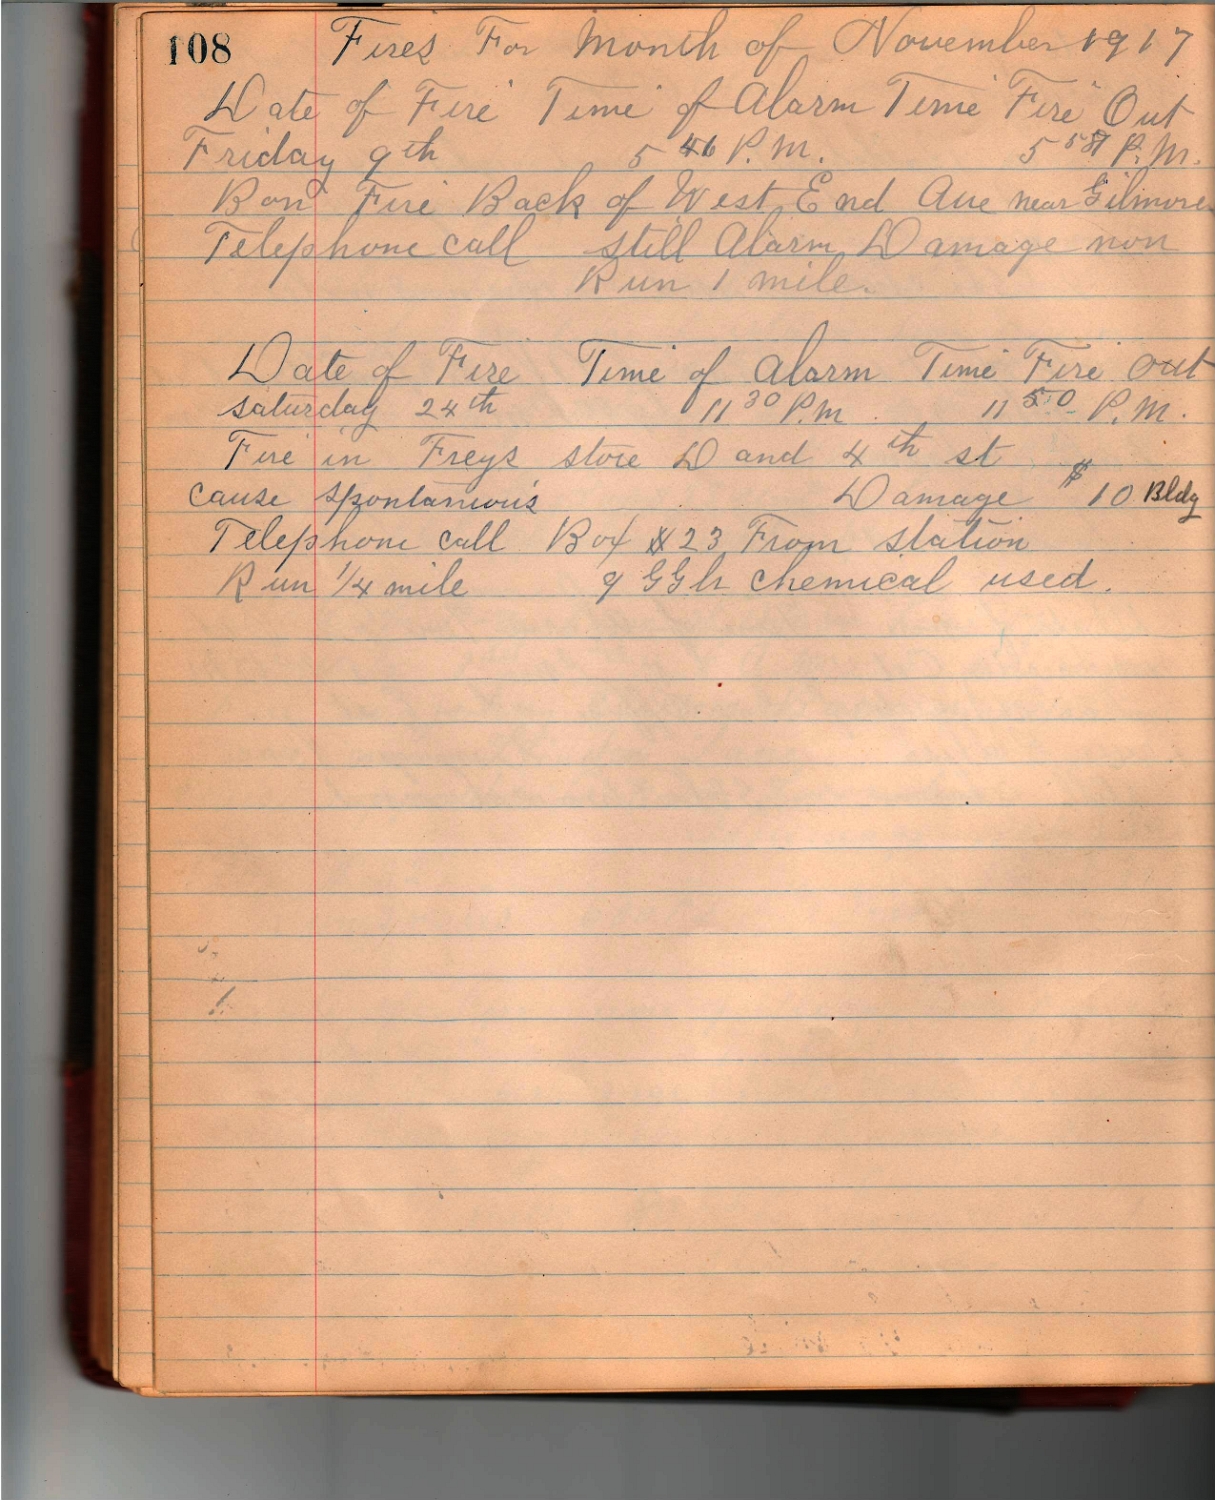 108 Fires For Month of November 1917
Date of Fire Time of Alarm Time Fire Out
Friday 9th 5 46 P.M. 5 P.M.
Bon Fire Back of West End Ave near Gilmore
Telephone call still Alarm Damage non
Run 1 mile.
Date of Fire Time of Alarm Time Fire Out
Saturday 24th 11 30 P.M. 11 50 P.M.
Fire in Freys store D and 4th st
cause spontanious Damage $10 Bldg
Telephone call Box 23 From station
Run 1/4 mile 9 chemical used.